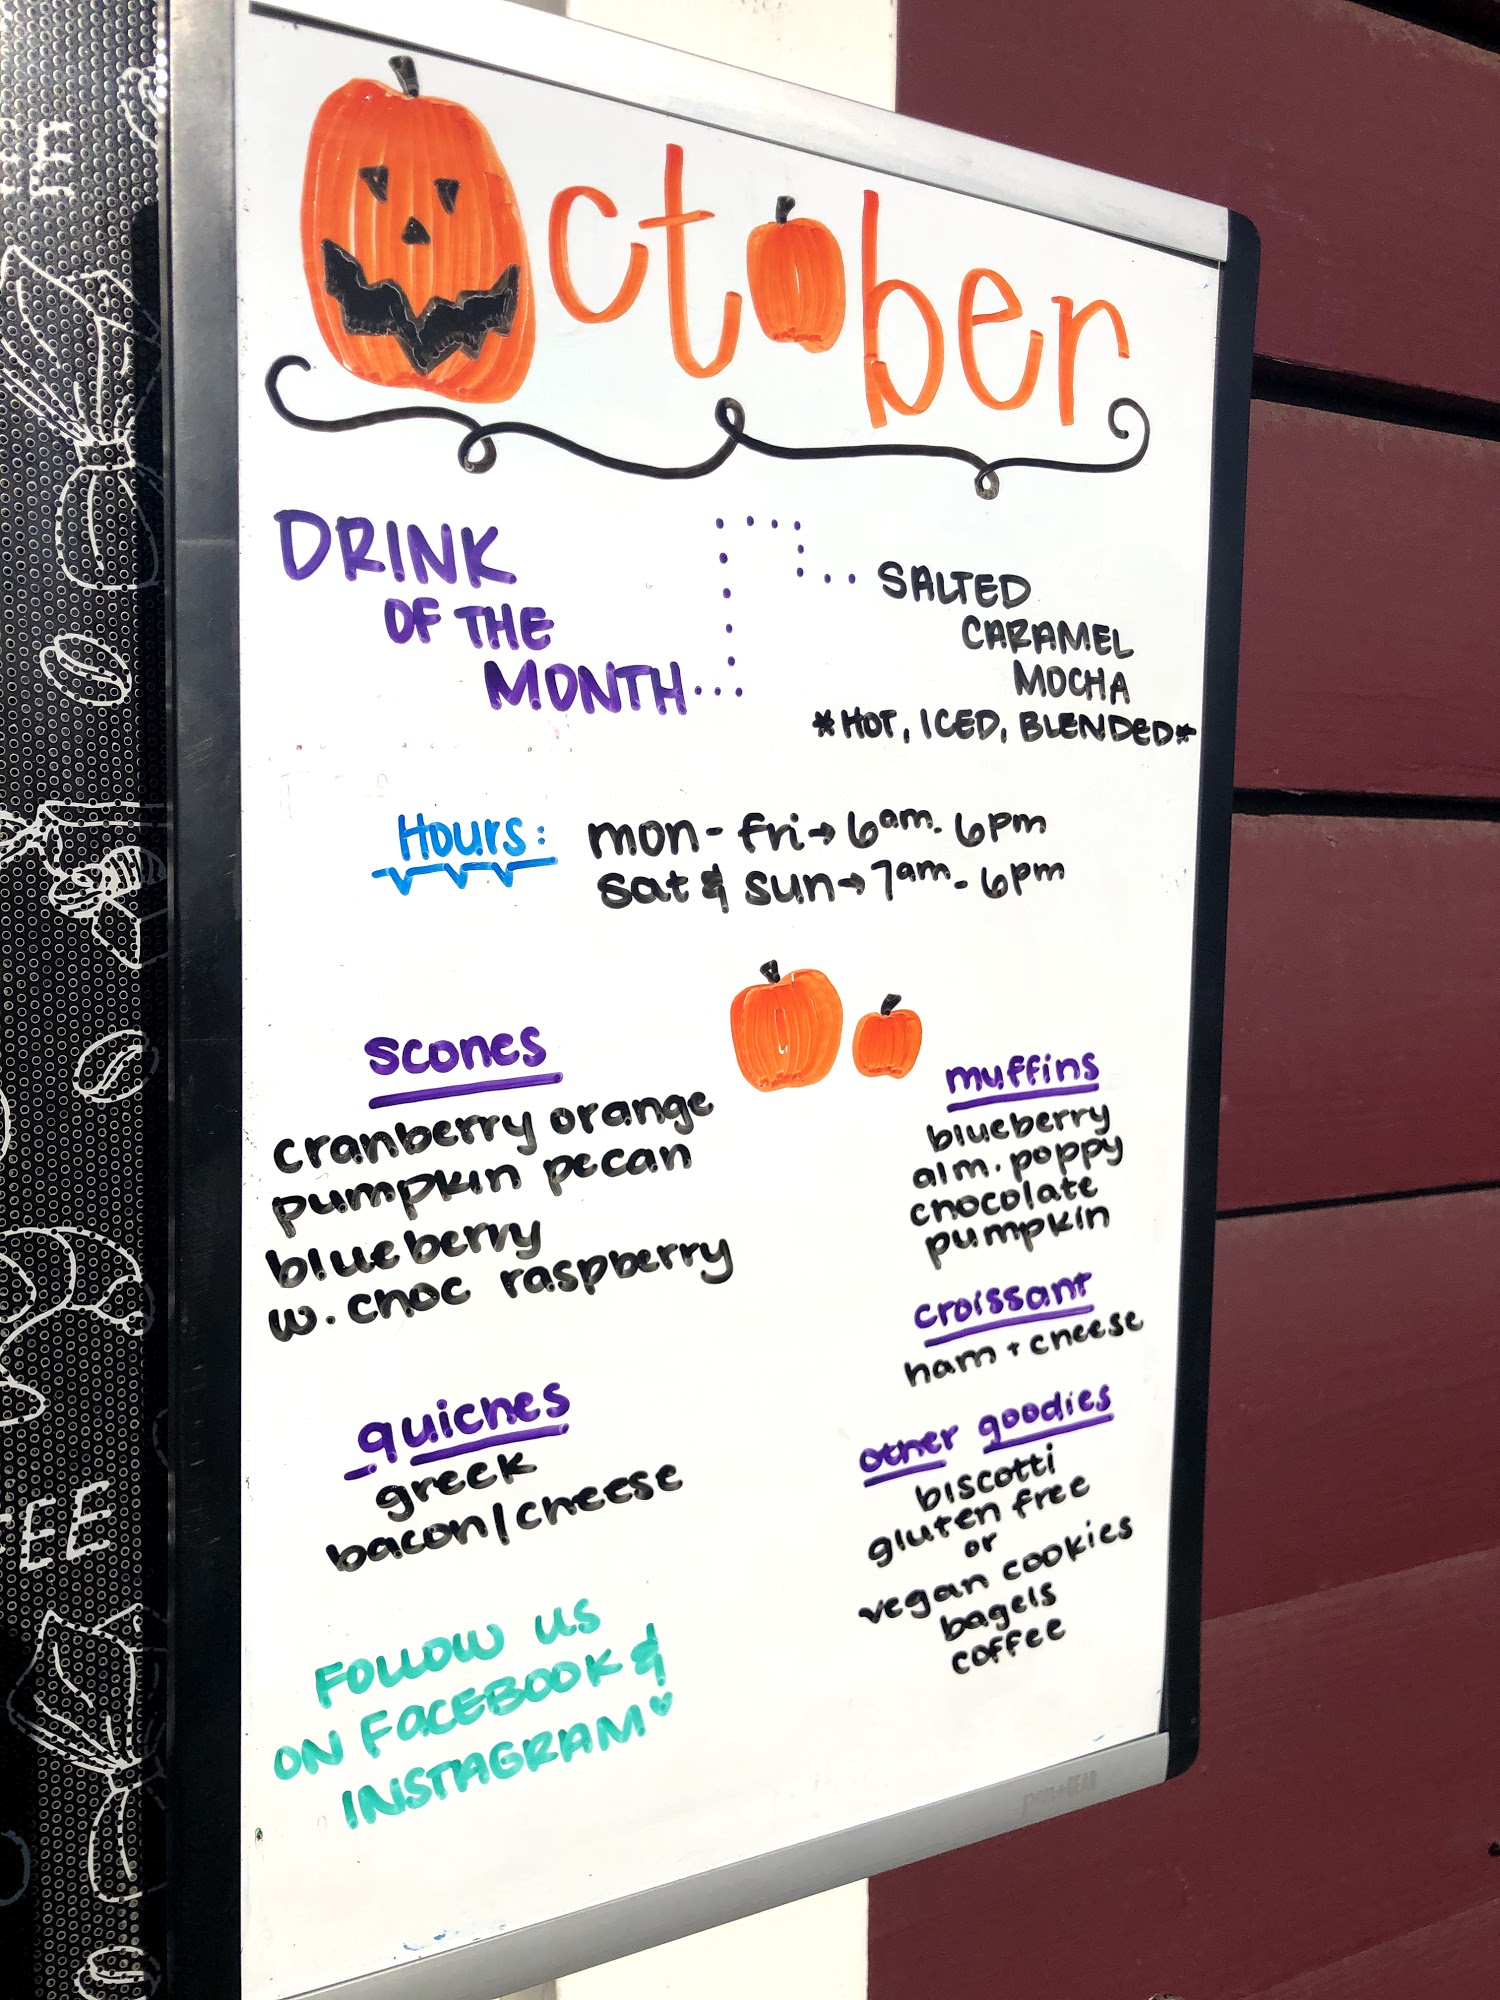 October
DRINK
OF THE
MONTH
SALTED
CARAMEL
MOCHA
*HOT, ICED, BLENDED*
Hours:
mon - fri → 6am - 6pm
sat & sun → 7am - 6pm
scones
cranberry orange
pumpkin pecan
blueberry
w. choc raspberry
quiches
greek
bacon/cheese
FOLLOW US
ON FACEBOOK &
INSTAGRAM
muffins
blueberry
alm. poppy
chocolate
pumpkin
croissant
ham + cheese
other goodies
biscotti
gluten free
or
vegan cookies
bagels
coffee
pen+GEAR